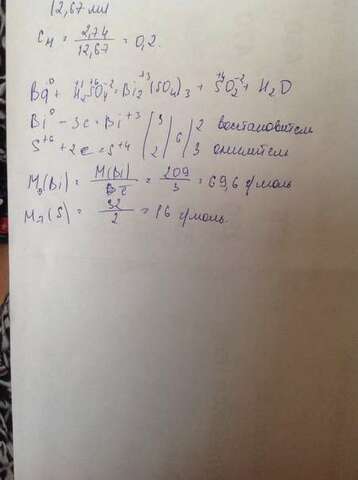 12,67 мл
Cн = 2,74 / 12,67 = 0,2.
Bi⁰ + H₂⁺¹S⁺⁶O₄⁻² = Bi₂⁺³(SO₄)₃ + S⁺⁴O₂⁻² + H₂O
Bi⁰ - 3e = Bi⁺³ | 3 | 6 | 2 востановители
S⁺⁶ + 2e = S⁺⁴ | 2 | | 3 окислители
Mэ(Bi) = M(Bi) / Bē = 209 / 3 = 69,6 г/моль
Mэ(S) = 32 / 2 = 16 г/моль.